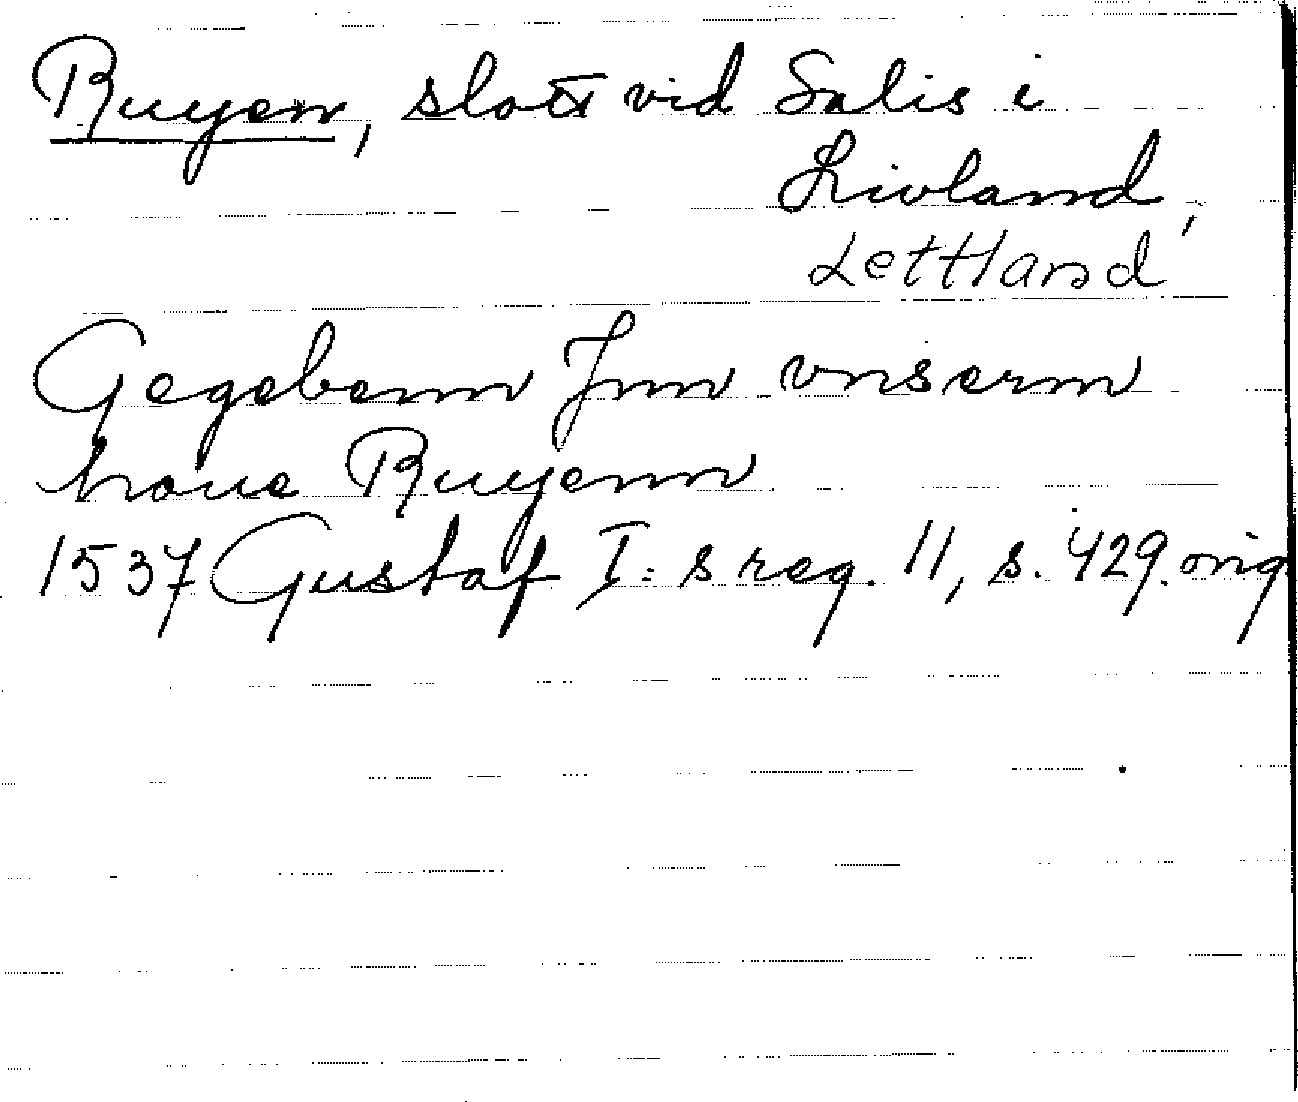 Ruyen, slott vid Salis i
Livland,
Lettland
Gegebenn Jnn vnserm
houe Ruyenn
1537 Gustaf I:s reg. 11, s. 429. orig